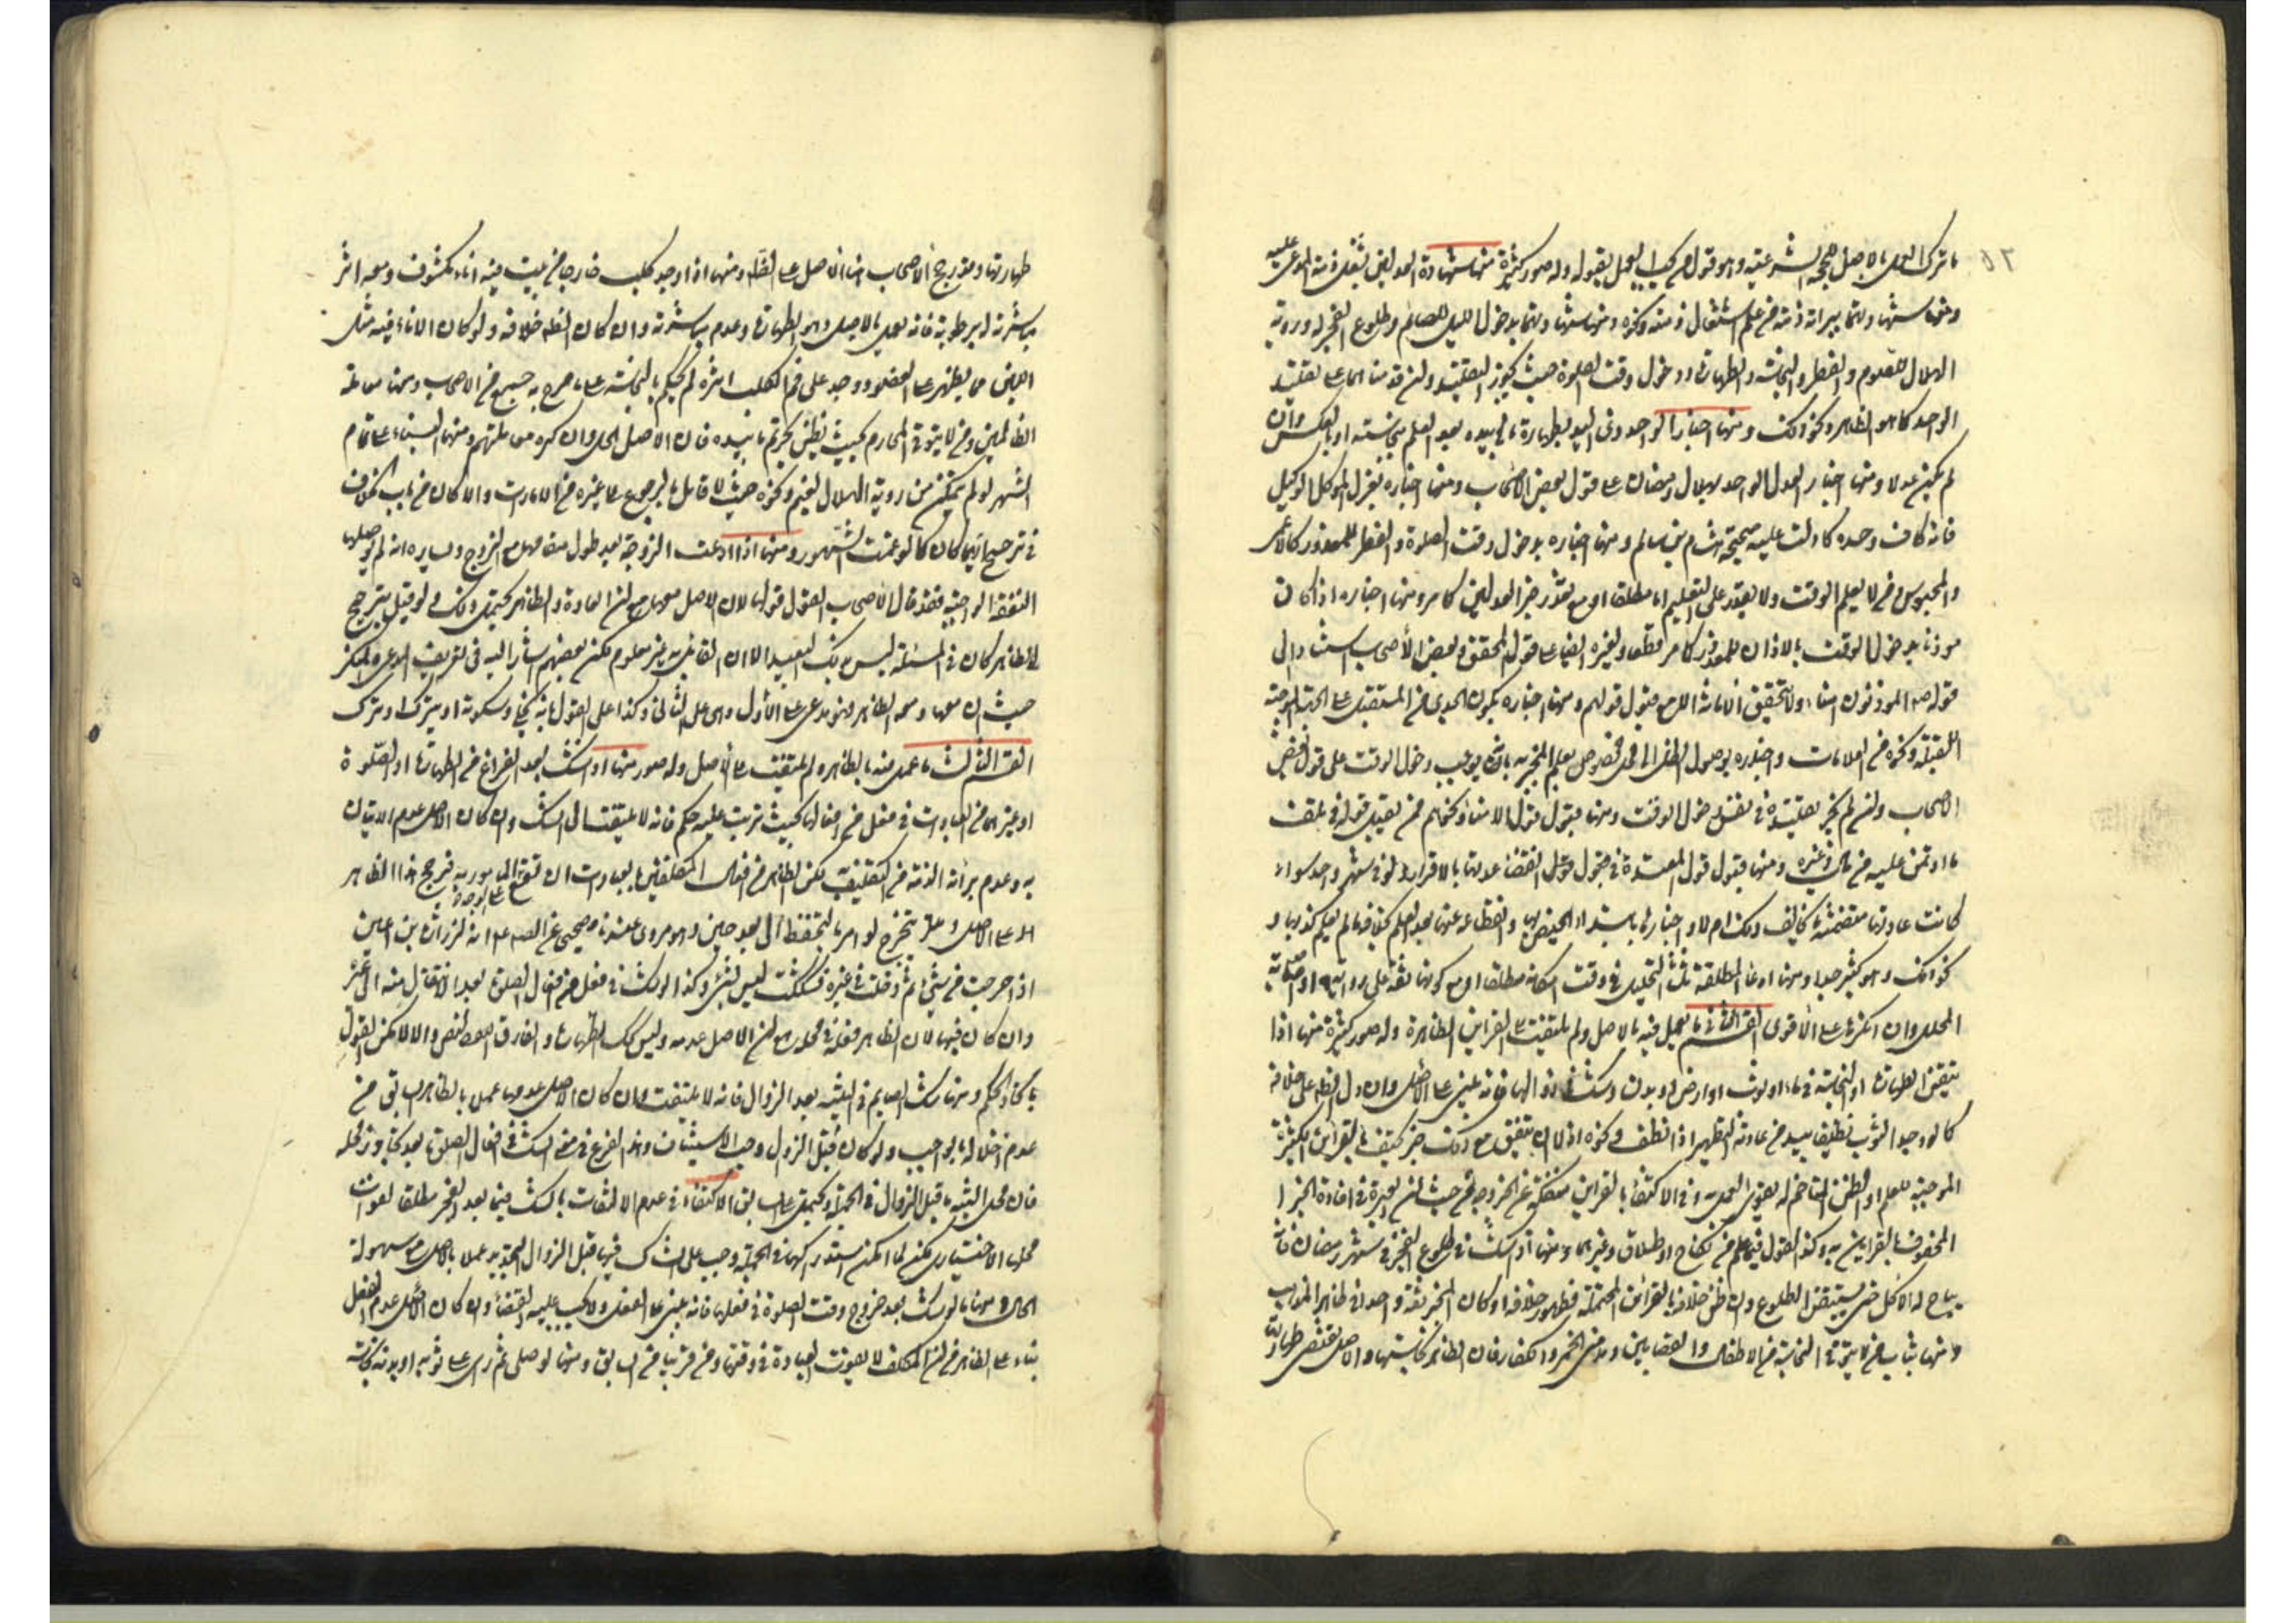 ما ترك العمل بالاصل للحجة الشرعية وهو قول من يجب العمل بقوله وله صور كثيرة منها شهادة العدلين بشغل ذمة المدعى عليه
ومنها شهادتهما ببرائة ذمة من علم اشتغال ذمته ونحوه ومنها شهادتهما بدخول الليل للصائم وطلوع الفجر له ورؤية
الهلال للصوم والفطر والنجاسة والطهارة ودخول وقت الصلوة حيث يجوز التقليد
الواحد كما هو الظاهر ونحو ذلك ومنها اخبار الواحد ذى اليد بطهارة ما بيده بعد العلم بنجاسته او بالعكس وان
لم يكن عدلا ومنها اخبار العدل الواحد بهلال رمضان على قول بعض الاصحاب ومنها اخباره بعزل الموكل الوكيل
فانه كاف وحده كما دلت عليه صحيحة هشام بن سالم ومنها اخباره بدخول وقت الصلوة والفطر للمعذور كالاعمى
والمحبوس ومن لا يعلم الوقت ولا يقدر على التعلم اما مطلقا او مع تعذر خبر العدلين كما مر ومنها اخباره اذا كان
موذنا بدخول الوقت بالاذان للمعذور كما مر قطعا ولغيره ايضا على قول المحقق وبعض الأصحاب استنادا الى
قوله ص المؤذنون امناء ولا تتحقق الامانة الا مع قبول قولهم ومنها اخباره بكون الجدى من المستقبل على الجهة الموجبة
للقبلة ونحوه من العلامات واخباره بوصول الظل الى محل مخصوص يعلم المخبر به بانه يوجب دخول الوقت على قول بعض
الاصحاب وان لم يجز تقليده في نفس دخول الوقت ومنها قبول قول الامناء ونحوهم ممن يقبل قوله في تلف
ما اوتمن عليه من مال وغيره ومنها قبول قول المعتدة في انقضاء عدتها بالاقراء ولو في شهر واحد سواء
كانت عادتها منتظمة بما يخالف ذلك ام لا واخبارها بابتداء الحيض بها وانقطاعه عنها ما لم يعلم كذبها و
نحو ذلك وهو كثير جدا ومنها ادعاء المطلقة ثلثا التحليل في وقت امكانه مطلقا او مع كونها ثقة على رواية او اصابة
المحلل وان انكرها على الأقوى القسم الثانى ما عمل فيه بالاصل ولم يلتفت الى القراين الظاهرة وله صور كثيرة منها اذا
تيقن الطهارة او النجاسة في ماء او ثوب او ارض او بدن وشك في زوالها فانه يبنى على الأصل وان دل الظاهر على خلافه
كما لو وجد الثوب نظيفا بيد من عادته التطهير اذا نظف ونحوه اذا لم يتفق مع ذلك خبر محتف بالقراين الكثيرة
الموجبة للعلم او الظن المتاخم له بقوى العمل به وفى الاكتفاء بالقراين منفكة عن الخبر وجه من حيث ان العبرة في افادة الخبر
المحفوف بالقراين به وكذا القول فيما علم من نكاح او طلاق وغيرهما ومنها اذا شك في طلوع الفجر في شهر رمضان فانه
يباح له الاكل حتى يستيقن الطلوع وان ظن خلافه بالقراين المحتملة لظهور خلافه او كان المخبر ثقة واحدا في ظاهر المذهب
ومنها ثياب من لا يتوقى النجاسة من الاطفال والقصابين ومدمنى الخمر والكفار فان الظاهر نجاستها والاصل يقتضى طهارتها
طهارتها وقد رجح الاصحاب هنا الاصل على الظاهر ومنها اذا وجد كلب خارجا من بيت فيه اناء مكشوف ومعه اثر
مباشرته له برطوبة فانه يعمل بالاصل وهو الطهارة وعدم مباشرته وان كان الظاهر خلافه ولو كان الاناء فيه مثل
اللبن مما يظهر على العضو ووجد على فم الكلب اثره لم يحكم بالنجاسة على ما صرح به جمع من الاصحاب ومنها معاملة
الظالمين ومن لا يتوقى المحارم بحيث يظن تحريم ما بيده فان الاصل الحل وان كره معاملتهم ومنها البناء على تمام
الشهر لو لم يمكن من رؤية الهلال لغيم ونحوه حيث لا قائل بالرجوع الى غيره من الامارات والا كان من باب الخلاف
في ترجيح ايهما كان كما لو غمت الشهور ومنها اذا ادعت الزوجة بعد طول مقامها مع الزوج ويساره انه لم يوصلها
النفقة الواجبة فقد قال الاصحاب القول قولها لان الاصل معها مع ان العادة والظاهر يحيل ذلك ولو قيل بترجيح
الظاهر كان في المسئلة ليس بذلك البعيد الا ان القائل به غير معلوم لكن بعضهم اشار اليه فى تعريف المدعى والمنكر
حيث ان معها ومعه الظاهر فهو مدعى على الأول وهى على الثانى وكذا على القول بانه يخلى وسكوته او يترك او ترك
القسم الثالث ما عمل فيه بالظاهر ولم يلتفت الى الأصل وله صور منها اذا شك بعد الفراغ من الطهارة او الصلوة
او غيرهما من العبادات في فعل من افعالها بحيث يترتب عليه حكم فانه لا يلتفت الى الشك وان كان الاصل عدم الاتيان
به وعدم برائة الذمة من التكليف لكن الظاهر من افعال المكلفين بالعبادات ان تقع على الوجه المامور به فرجح هذا الظاهر
على الاصل وهو مروى عندنا صحيحا عن الصادق ع انه قال لزرارة بن اعين
اذا خرجت من شىء ثم دخلت في غيره فشكك ليس بشئ وكذا لو شك في فعل من افعال الصلوة بعد الانتقال منه الى غيره
وان كان فيها لان الظاهر فعله في محله مع ان الاصل عدمه وليس كك الطهارة والفارق النص والا لامكن القول
باتحاد الحكم ومنها شك الصايم في النية بعد الزوال فانه لا يلتفت وان كان الاصل عدمها عملا بالظاهر السابق من
عدم اخلاله بالواجب ولو كان قبل الزوال وجب الاستيناف وهذا الفرع في معنى الشك في افعال الصلوة بعد تجاوز محله
فان محل النية ما قبل الزوال في الجملة ويحتمل الاكتفاء في عدم الالتفات بالشك فيها بعد الفجر مطلقا لفوات
محلها الاختيارى لكن لما امكن استدراكها في الجملة وجب على الشاك فيها قبل الزوال التجديد عملا بالاصل مع سهولة
الحال ومنها ما لو شك بعد خروج وقت الصلوة في فعلها فانه يبنى على الفعل ولا يجب عليه القضاء وان كان الأصل عدم الفعل
بناء على الظاهر من ان المكلف لا يفوت العبادة في وقتها وهو قريب من السابق ومنها لو صلى ثم راى على ثوبه او بدنه نجاسة